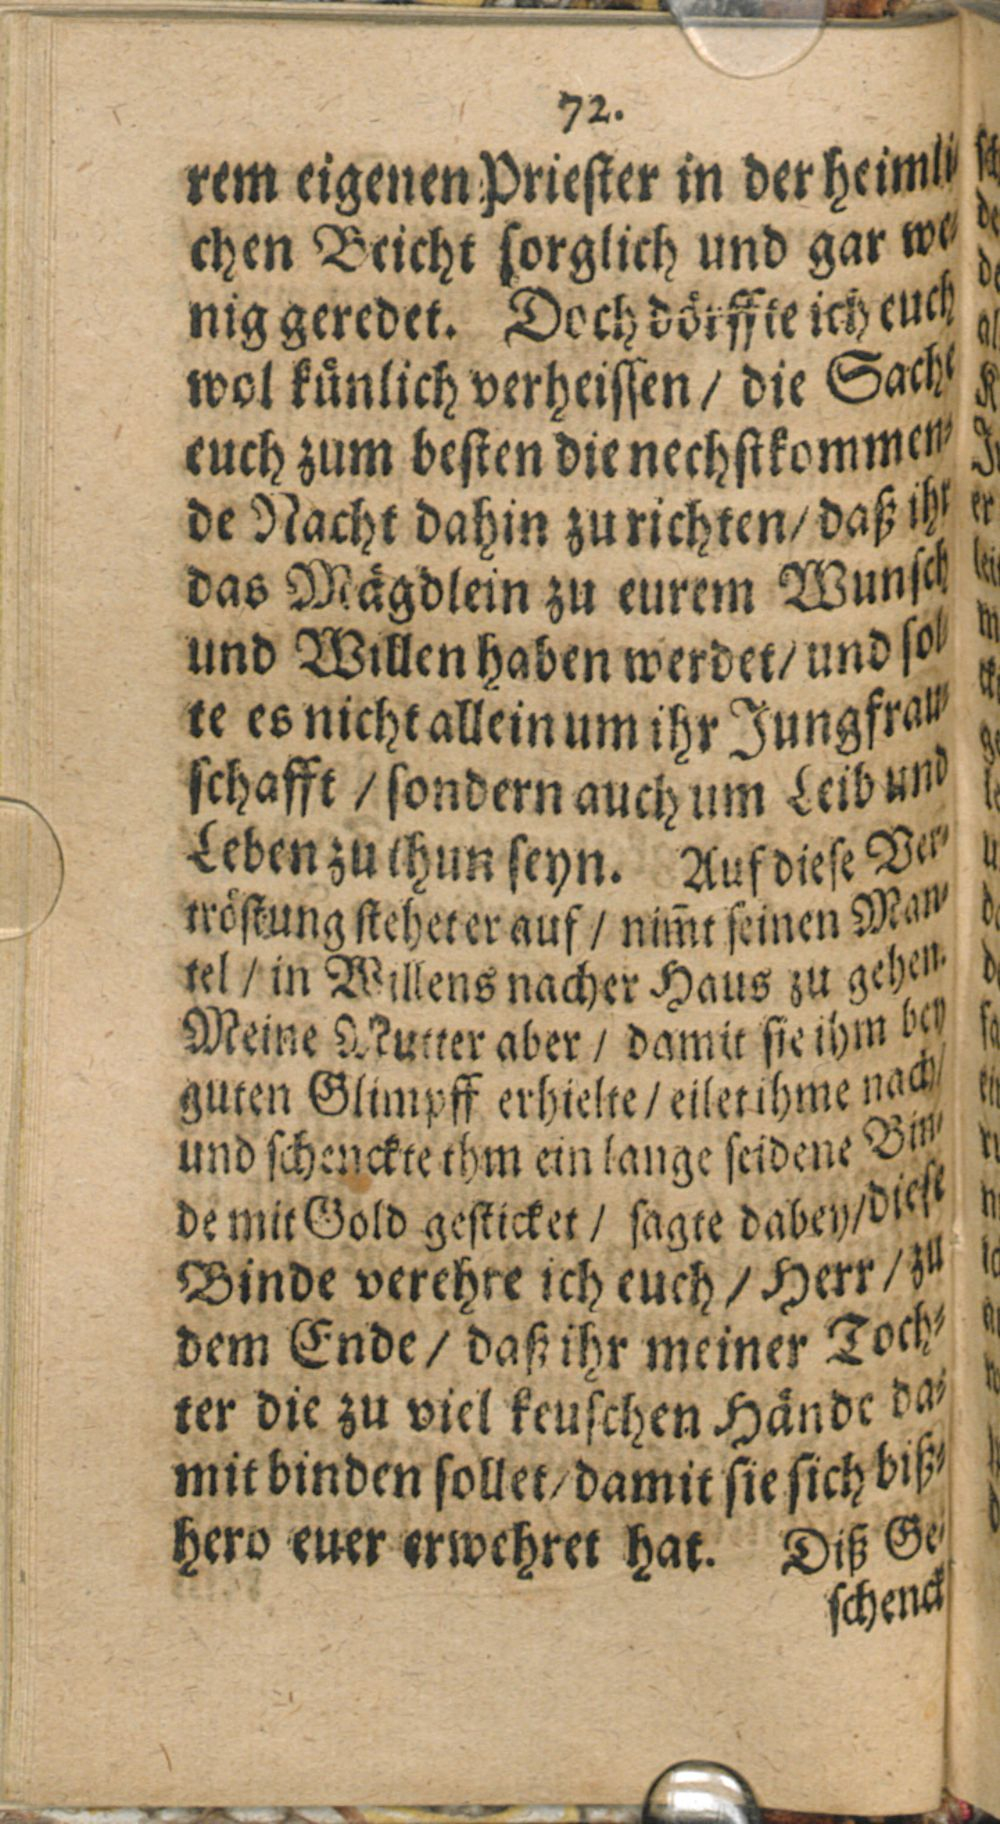 72.
rem eigenen Priester in der heimli⸗
chen Beicht sorglich und gar we⸗
nig geredet. Doch dörffte ich euch
wol künlich verheissen / die Sache
euch zum besten die nechstkommen⸗
de Nacht dahin zu richten / daß ihr
das Mägdlein zu eurem Wunsch
und Willen haben werdet / und sol
te es nicht allein um ihr Jungfrau⸗
schafft / sondern auch um Leib und
Leben zu thun seyn. Auf diese Ver⸗
tröstung stehet er auf / nim̃t seinen Man⸗
tel / in Willens nacher Haus zu gehen.
Meine Mutter aber / damit sie ihm bey
guten Glimpff erhielte / eilet ihme nach /
und schenckte ihm ein lange seidene Bin⸗
de mit Gold gesticket / sagte dabey / diese
Binde verehre ich euch / Herr / zu
dem Ende / daß ihr meiner Toch⸗
ter die zu viel keuschen Hände da⸗
mit binden sollet / damit sie sich biß⸗
hero euer erwehret hat. Diß Ge⸗
schenck